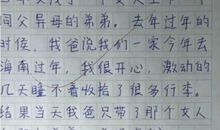 同父异母的弟弟。去年过年的
时候，我爸说我们一家今年去
海南过年，我很开心，激动的
几天睡不着收拾了很多行李。
结果当天我爸只带了那个女人